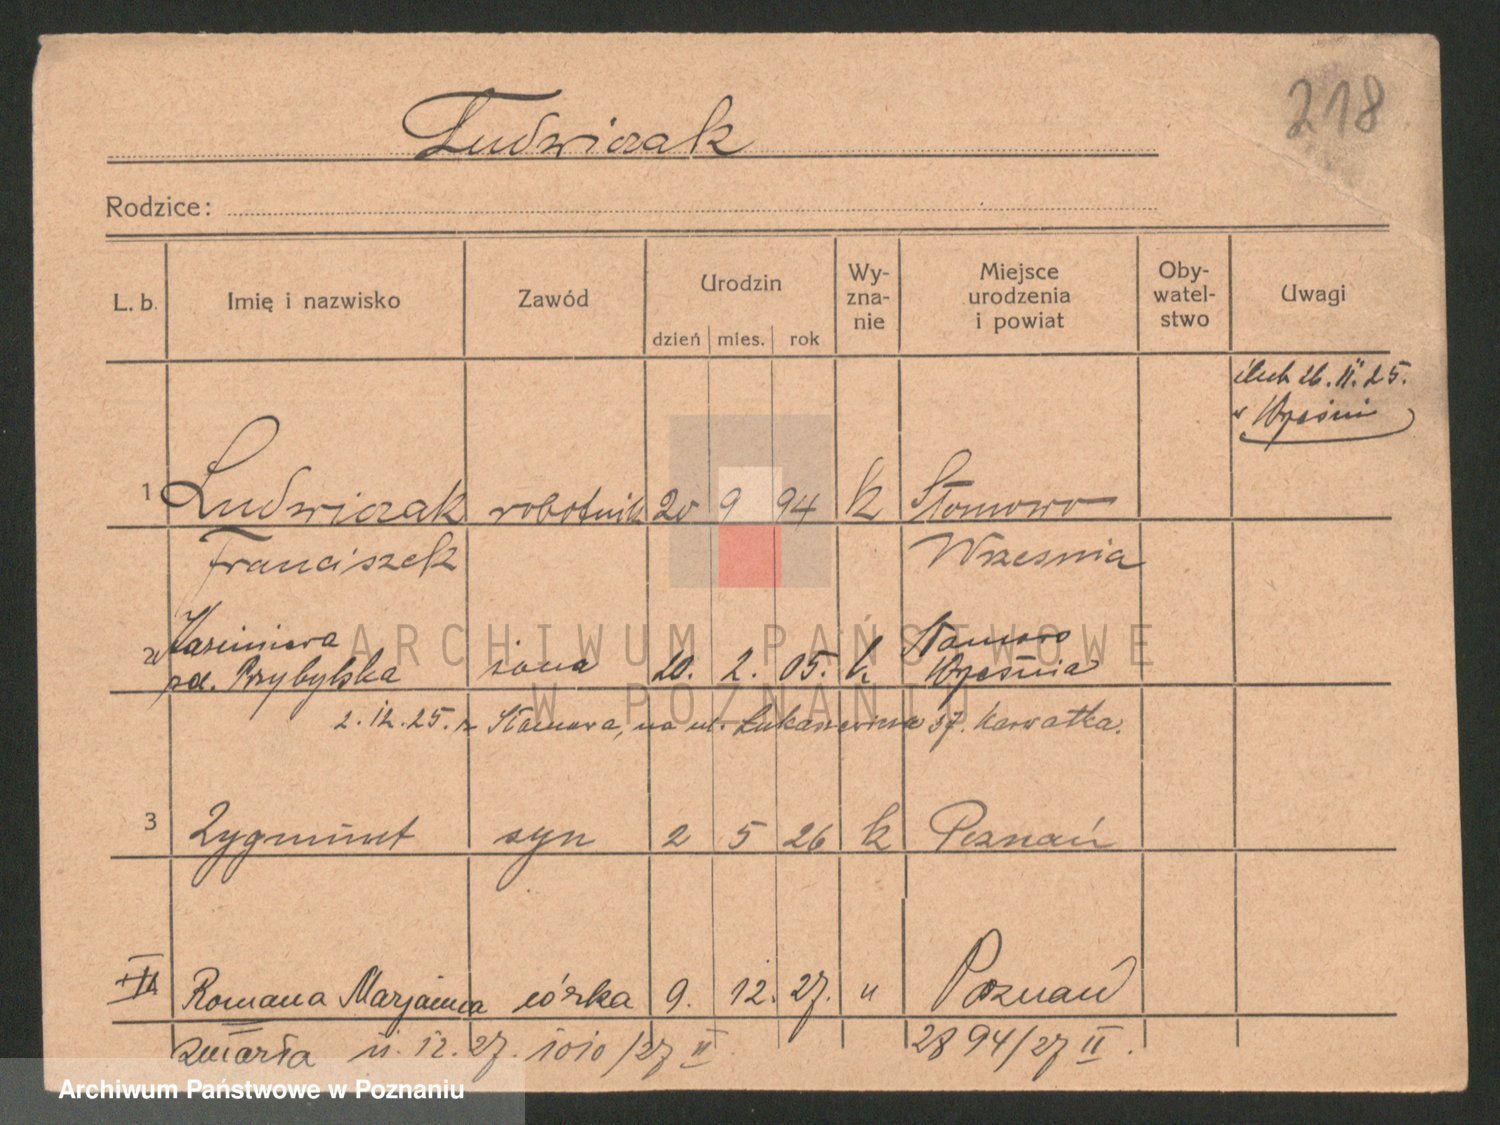 218
Ludwiczak
Rodzice:
L. b. Imię i nazwisko Zawód Urodzin dzień mies. rok Wy-zna-nie Miejsce urodzenia i powiat Oby-watel-stwo Uwagi
ślub 26. 11. 25.
w Wrześni
1 Ludwiczak robotnik 20 9 94 k Słomowo
Franciszek Wrzesnia
2 Kazimiera Słomowo
rd. Przybylska żona 20. 2. 05. k Września
2. 12. 25. z Słomowa, na ul. Łukaszewicza 37. Karwatka.
3 Zygmunt syn 2 5 26 k Poznań
Romana Marjanna córka 9. 12. 27. " Poznań
zmarła 11. 12. 27. 1010/27 II. 2894/27 II.
ARCHIWUM PAŃSTWOWE
W POZNANIU
Archiwum Państwowe w Poznaniu